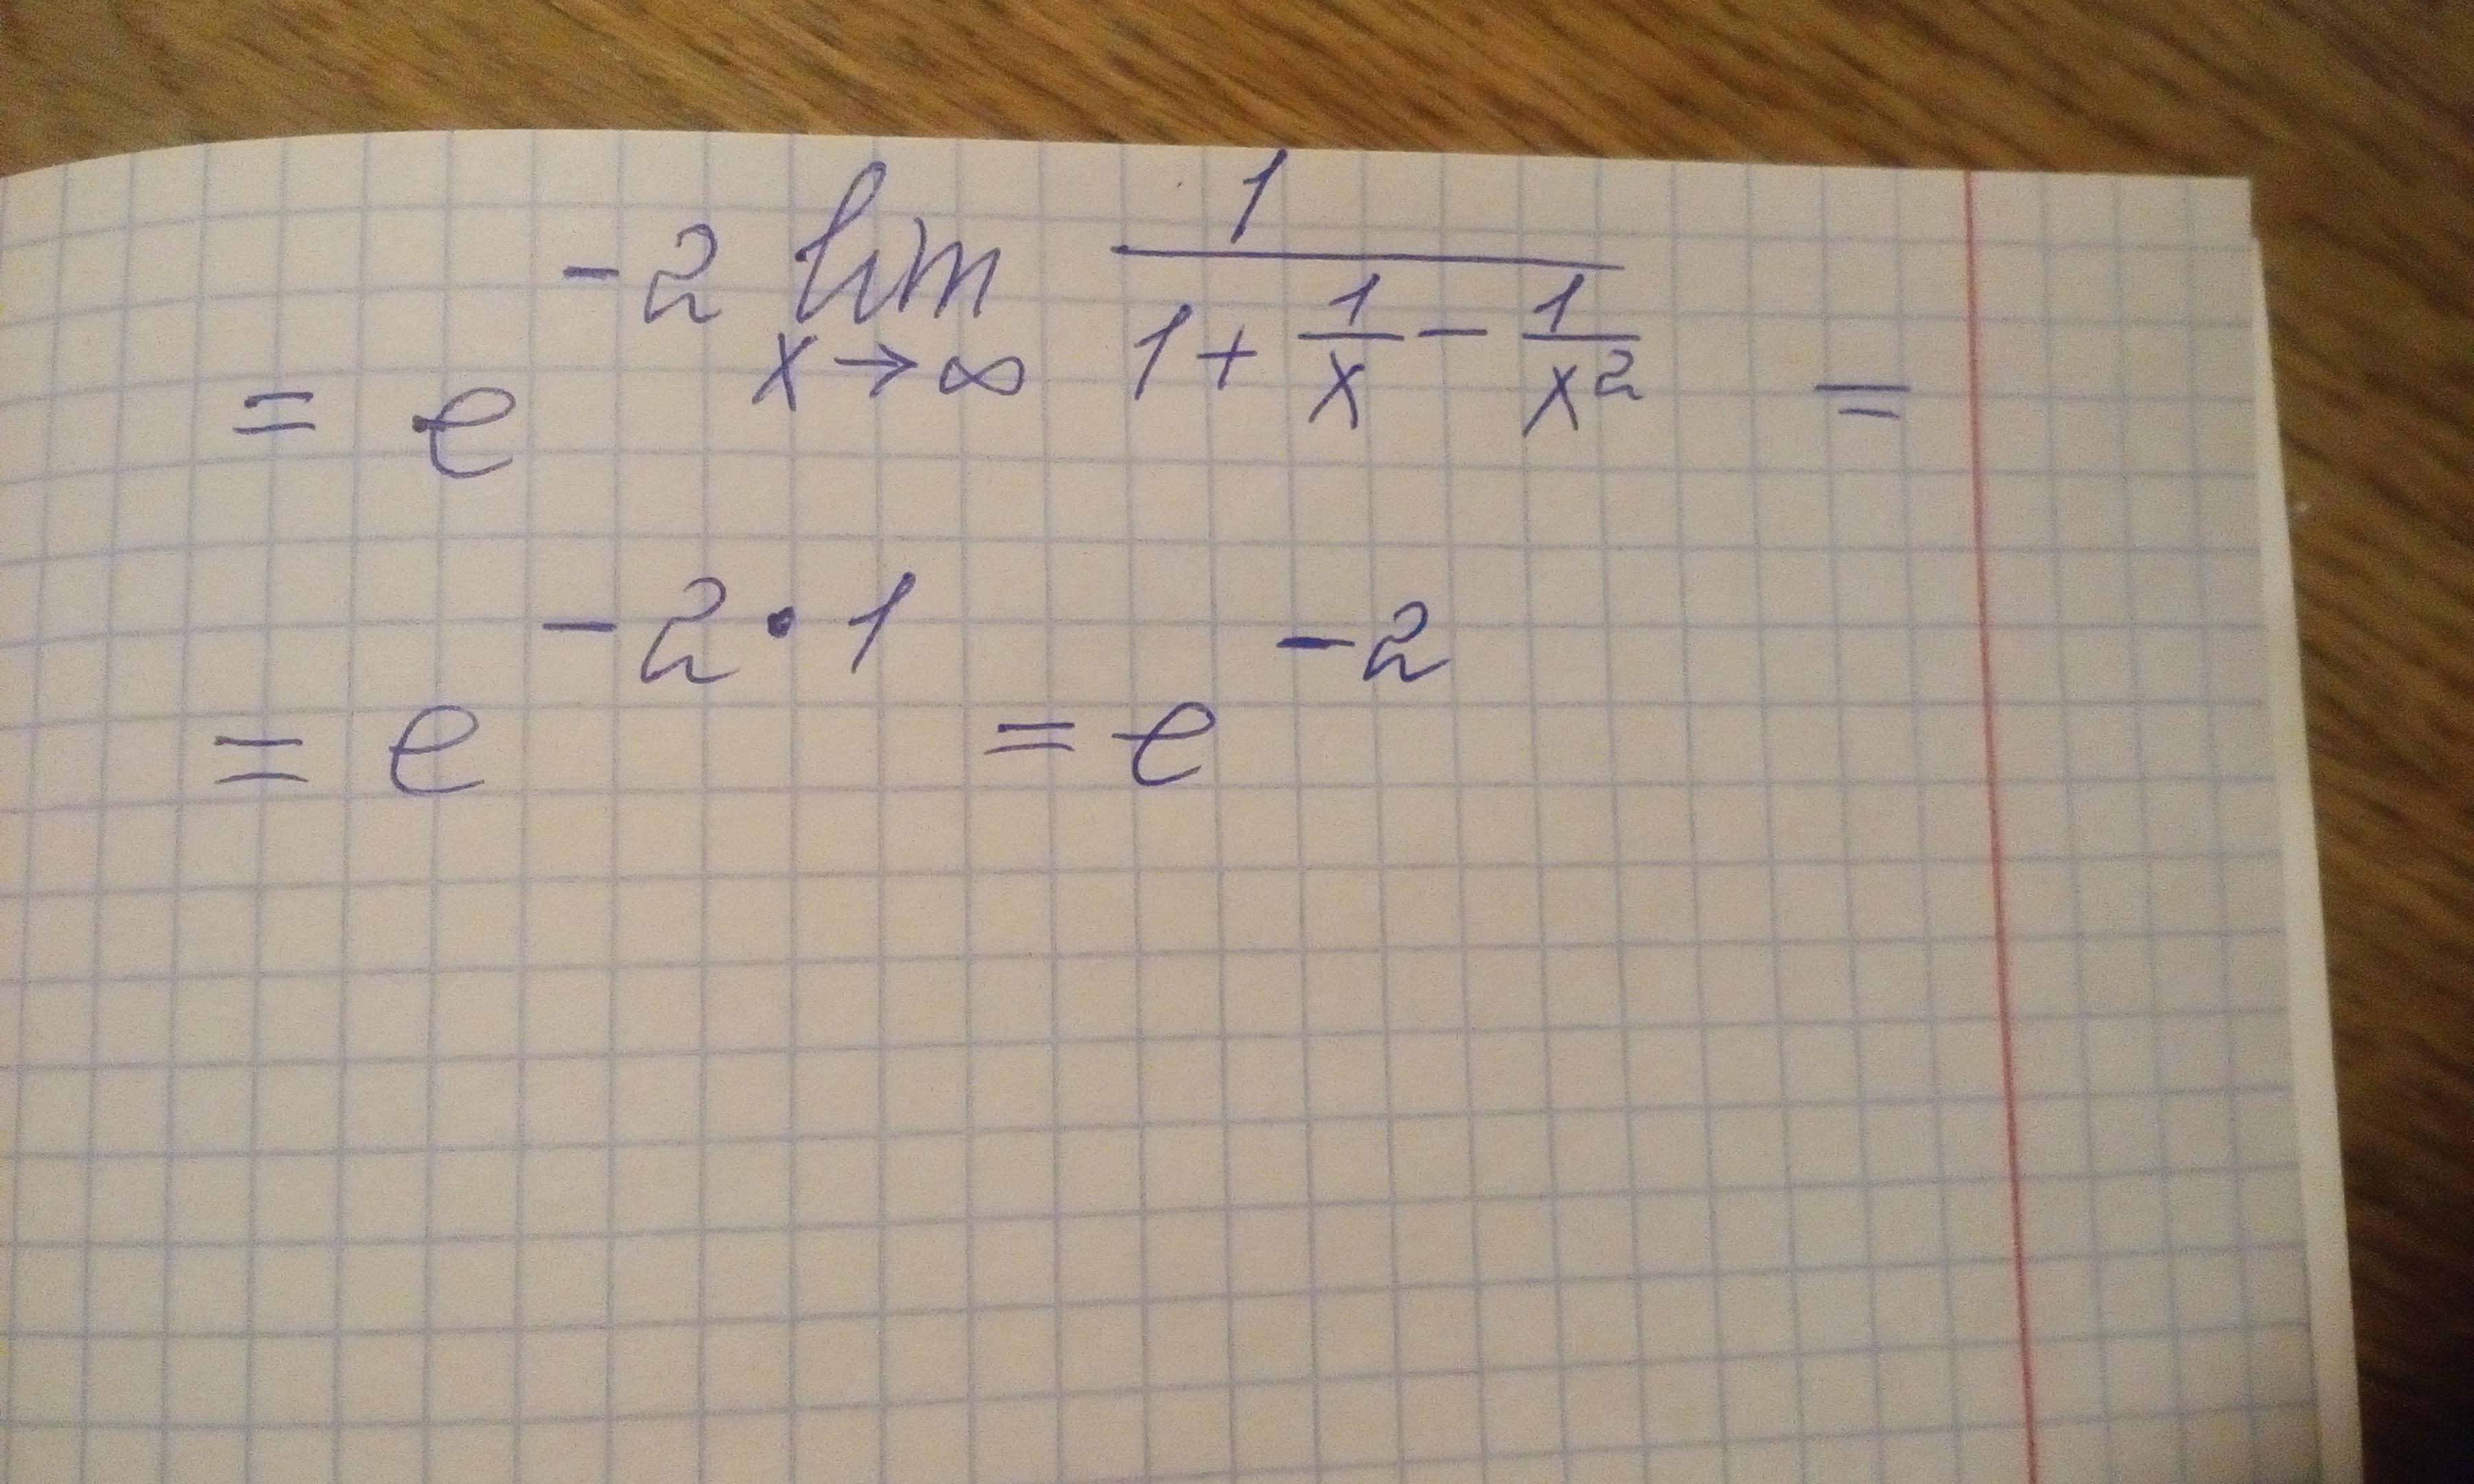 = e^{-2 \lim_{x \to \infty} \frac{1}{1 + \frac{1}{x} - \frac{1}{x^2}}} =
= e^{-2 \cdot 1} = e^{-2}